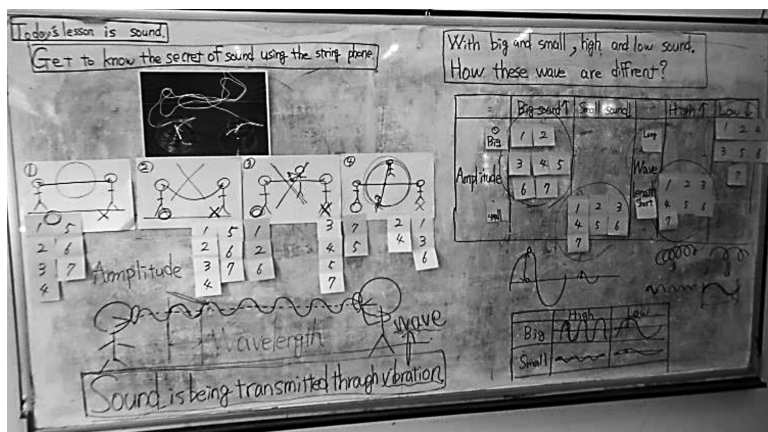 Today's lesson is sound.
Get to know the secret of sound using the string phone.
① ② ③ ④
1 5
2 6
3 7
4
1 5
2 6
3 7
4
1
2
6
3
4
5
7
7
4
5
2 1
4 3
6
Amplitude
Wavelength
wave
Sound is being transmitted through vibration
With big and small, high and low sound.
How these wave are diffrent?
Big sound↑ Small sound High↑ Low↓
Amplitude
Big
1 2
3 4 5
6 7
small
1 2 3
4 5 6
7
Wave
length
Long
1 2 4
3 5 6
7
Short
1 2 3
4 5 6
7
High Low
Big
Small